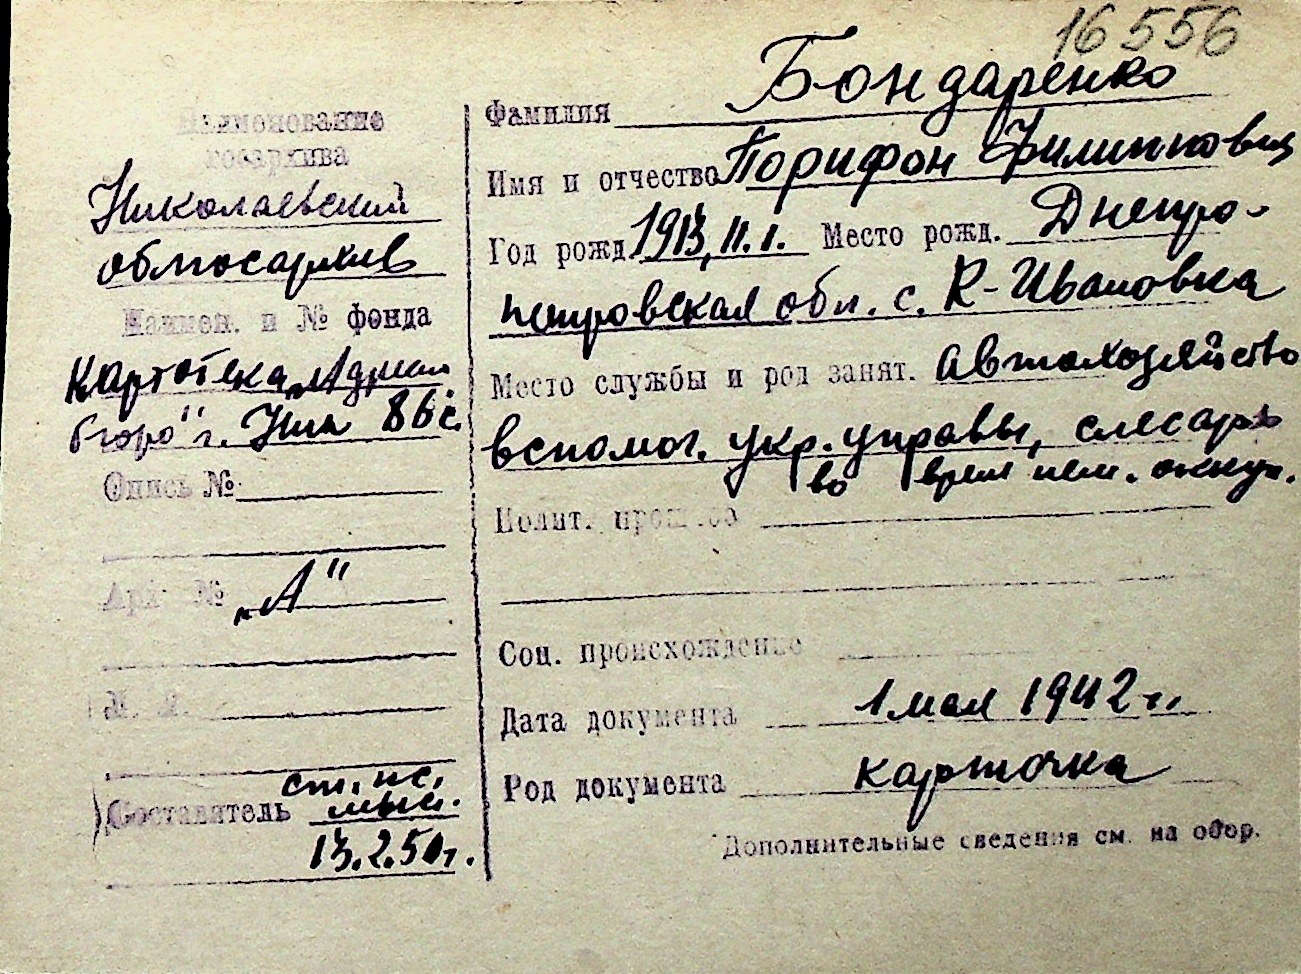 16556
Наименование
госархива
Николаевский
облгосархив
Наимен. и № фонда
Картотека „Адресн
бюро" г. Ник 86с.
Опись №
Арх №
„А"
Составитель ст. нс.
13.2.50г.
Фамилия Бондаренко
Имя и отчество Порифон Филиппович
Год рожд. 1913, 11.1. Место рожд. Днепро-
петровская обл. с. К-Ивановка
Место службы и род занят. Автохозяйство
вспомог. укр. управы, слесарь
во время нем. оккуп.
Полит. прошлое
Соц. происхождение
Дата документа 1 мая 1942 г.
Род документа карточка
Дополнительные сведения см. на обор.